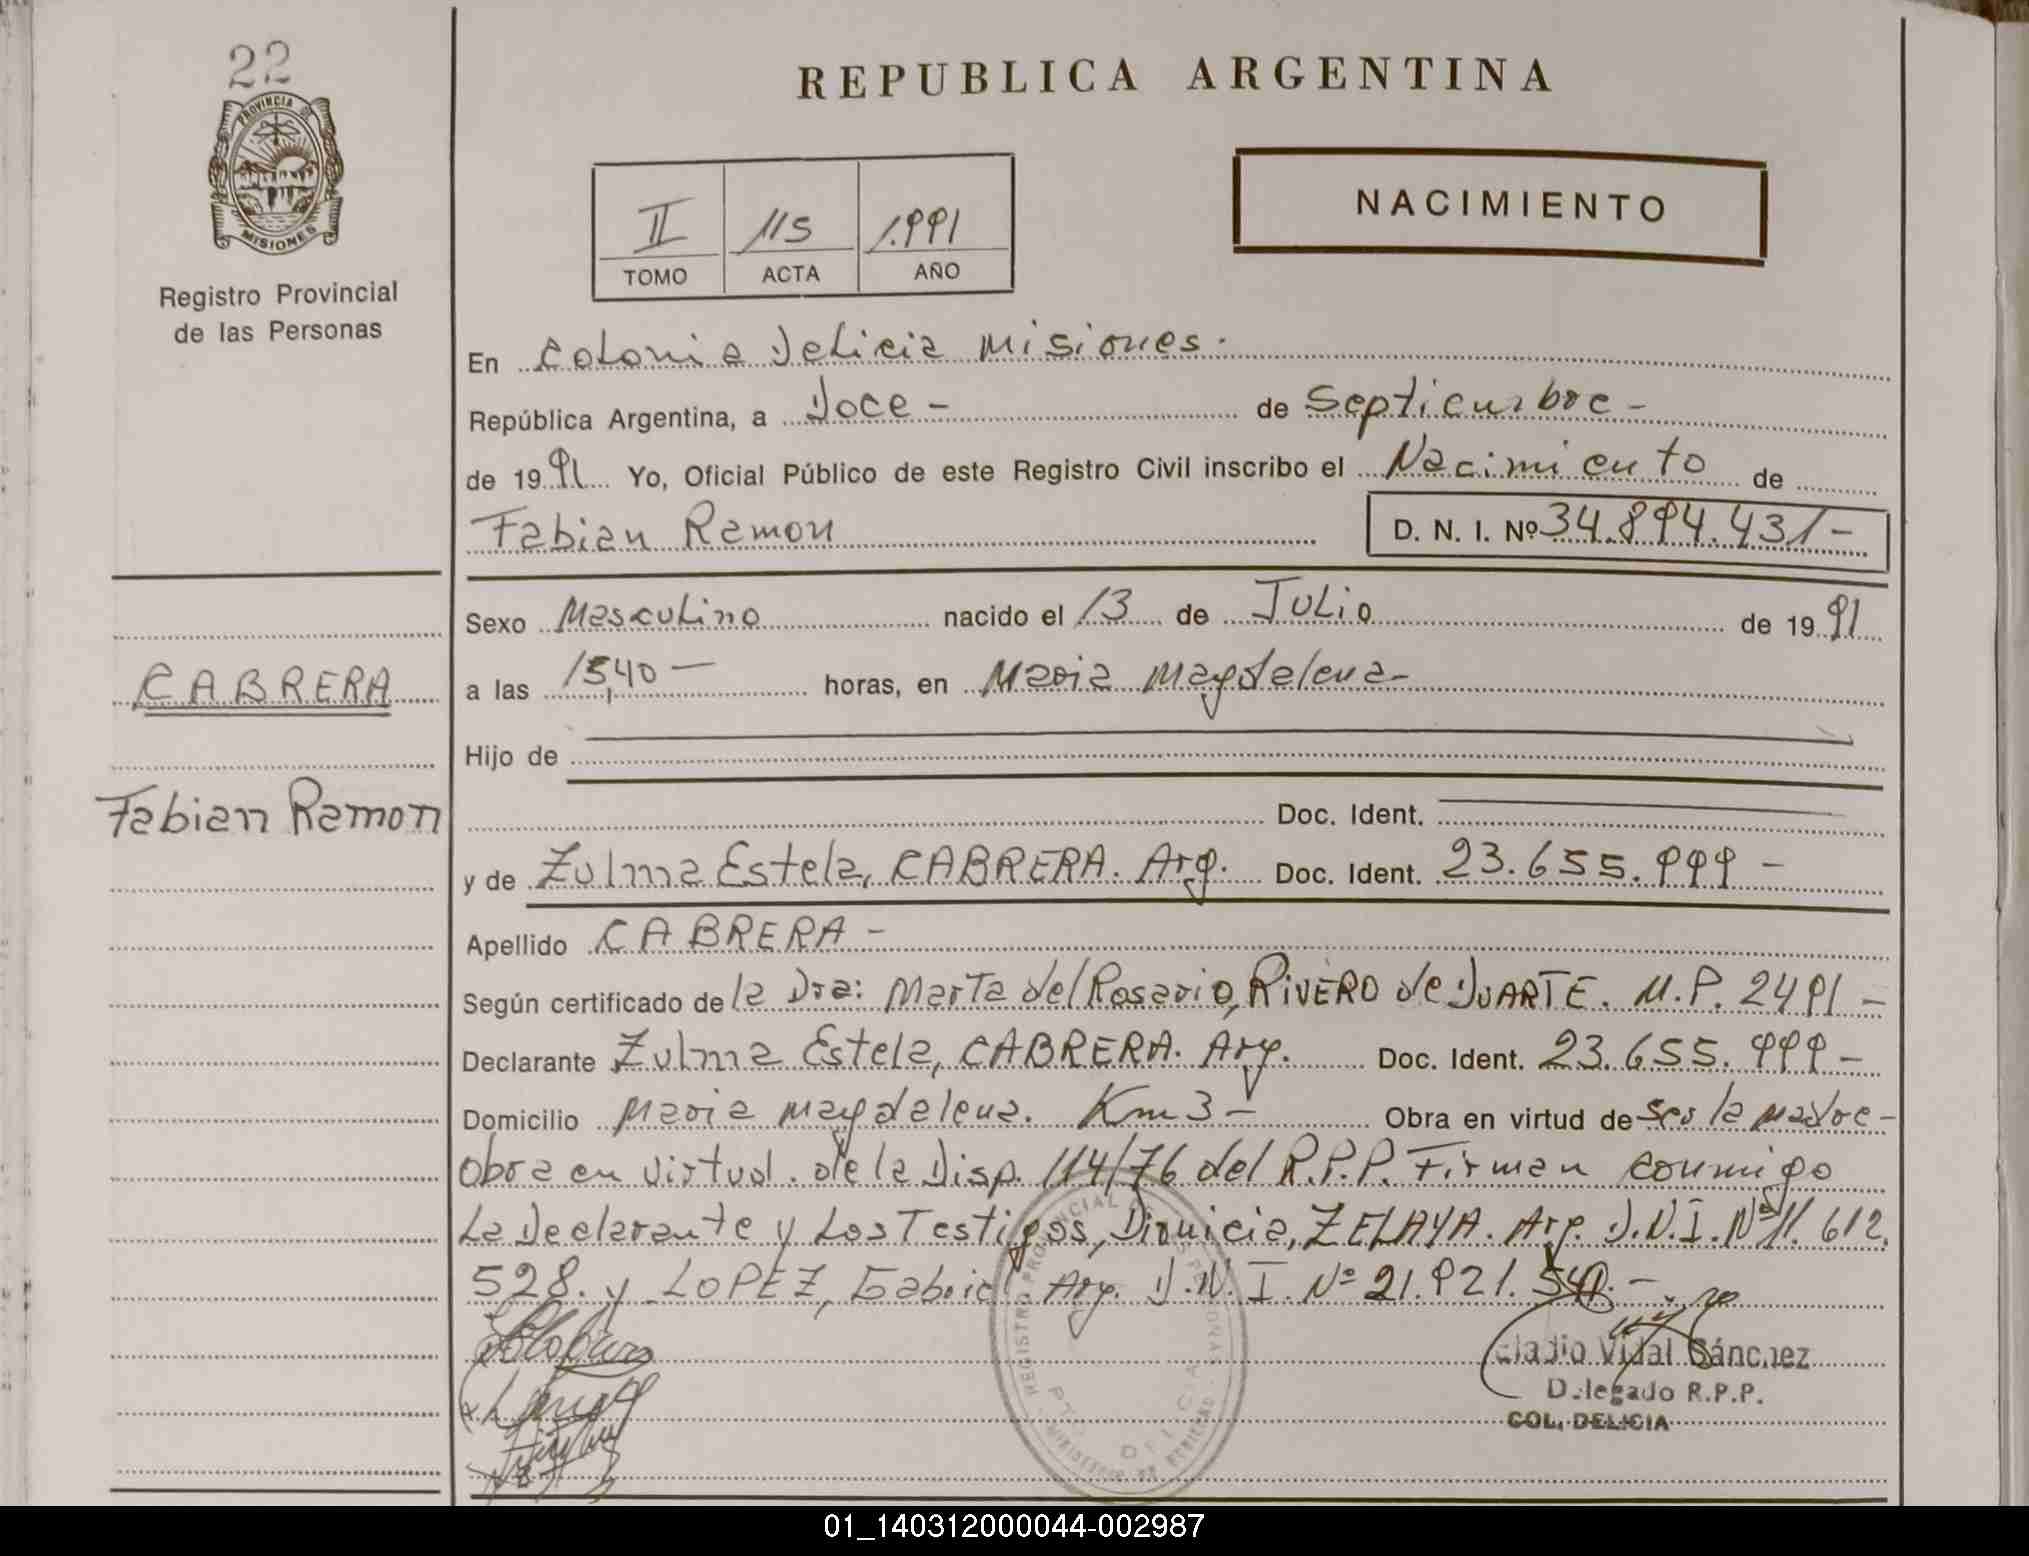 22
PROVINCIA
MISIONES
Registro Provincial
de las Personas
REPUBLICA ARGENTINA
NACIMIENTO
II 115 1.991
TOMO ACTA AÑO
En Colonia Delicia Misiones.
República Argentina, a Doce - de Septiembre -
de 1991 Yo, Oficial Público de este Registro Civil inscribo el Nacimiento de
Fabian Ramon D. N. I. Nº 34.894.431-
Sexo Masculino nacido el 13 de Julio de 1991
CABRERA
a las 15,40 - horas, en Maria Magdalena-
Hijo de
Fabian Ramon
Doc. Ident.
y de Zulma Estela, CABRERA. Arg. Doc. Ident. 23.655.999 -
Apellido CABRERA -
Según certificado de la Dra: Marta del Rosario, RIVERO de DUARTE. M.P. 2491 -
Declarante Zulma Estela, CABRERA. Arg. Doc. Ident. 23.655.999 -
Domicilio Maria Magdalena. Km 3 - Obra en virtud de ser la madre -
Obra en virtud. de la Disp. 114/76 del R.P.P. Firman conmigo
La Declarante y Los Testigos, ZELAYA. Arg. D.N.I. Nº 11.612.
528. y LOPEZ, Arg. D.N.I. Nº 21.921.
Eladio Vidal Sánchez
Delegado R.P.P.
COL. DELICIA
REGISTRO PROVINCIAL
01_140312000044-002987